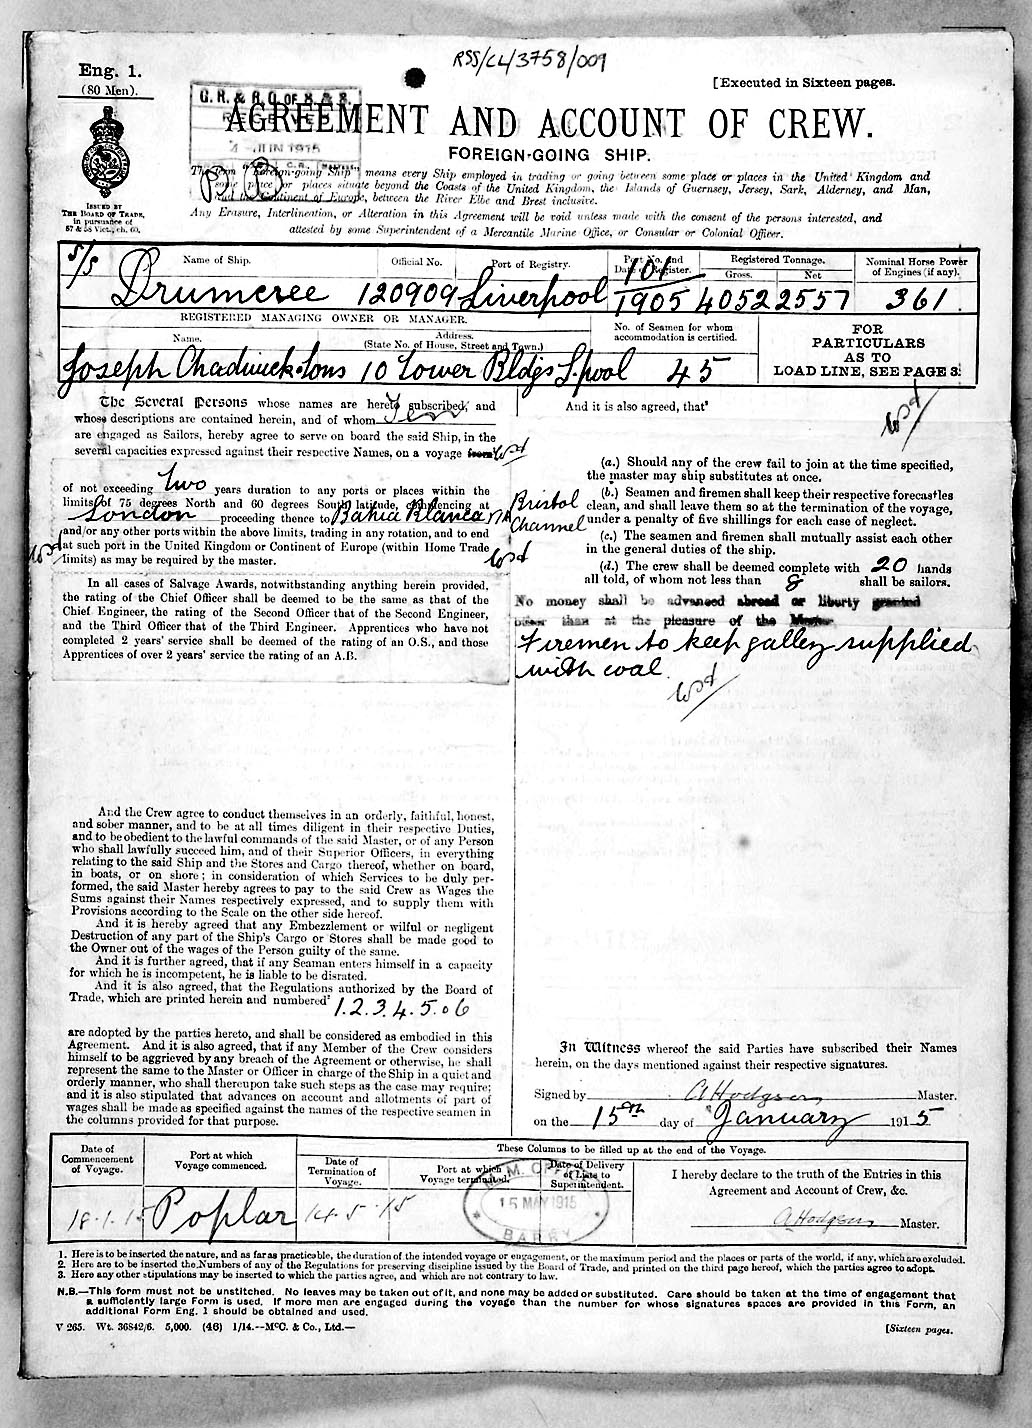 RSS/CL/3758/009
Eng. 1.
(80 Men).
[Executed in Sixteen pages.
G. R. & R. O. OF S. & S.
RECEIVED
4 JUN 1915
AGREEMENT AND ACCOUNT OF CREW.
FOREIGN-GOING SHIP.
The term "Foreign-going Ship" means every Ship employed in trading or going between some place or places in the United Kingdom and
some place or places situate beyond the Coasts of the United Kingdom, the Islands of Guernsey, Jersey, Sark, Alderney, and Man,
and the Continent of Europe, between the River Elbe and Brest inclusive.
Any Erasure, Interlineation, or Alteration in this Agreement will be void unless made with the consent of the persons interested, and
attested by some Superintendent of a Mercantile Marine Office, or Consular or Colonial Officer.
ISSUED BY
THE BOARD OF TRADE,
in pursuance of
57 & 58 Vict., ch. 60.
Name of Ship.
Official No.
Port of Registry.
Port No. and
Date of Register.
Registered Tonnage.
Gross.
Net
Nominal Horse Power
of Engines (if any).
S/S Drumcree
120909
Liverpool
101
1905
4052
2557
361
REGISTERED MANAGING OWNER OR MANAGER.
Name.
Address.
(State No. of House, Street and Town.)
No. of Seamen for whom
accommodation is certified.
FOR
PARTICULARS
AS TO
LOAD LINE, SEE PAGE 3.
Joseph Chadwick & Sons
10 Tower Bldgs L.pool
45
The Several Persons whose names are hereto subscribed, and
whose descriptions are contained herein, and of whom Ten
are engaged as Sailors, hereby agree to serve on board the said Ship, in the
several capacities expressed against their respective Names, on a voyage from
of not exceeding two years duration to any ports or places within the
limits of 75 degrees North and 60 degrees South latitude, commencing at
London proceeding thence to Bahia Blanca via Bristol Channel
and/or any other ports within the above limits, trading in any rotation, and to end
at such port in the United Kingdom or Continent of Europe (within Home Trade
limits) as may be required by the master.
In all cases of Salvage Awards, notwithstanding anything herein provided,
the rating of the Chief Officer shall be deemed to be the same as that of the
Chief Engineer, the rating of the Second Officer that of the Second Engineer,
and the Third Officer that of the Third Engineer. Apprentices who have not
completed 2 years' service shall be deemed of the rating of an O.S., and those
Apprentices of over 2 years' service the rating of an A.B.
And the Crew agree to conduct themselves in an orderly, faithful, honest,
and sober manner, and to be at all times diligent in their respective Duties,
and to be obedient to the lawful commands of the said Master, or of any Person
who shall lawfully succeed him, and of their Superior Officers, in everything
relating to the said Ship and the Stores and Cargo thereof, whether on board,
in boats, or on shore; in consideration of which Services to be duly per-
formed, the said Master hereby agrees to pay to the said Crew as Wages the
Sums against their Names respectively expressed, and to supply them with
Provisions according to the Scale on the other side hereof.
And it is hereby agreed that any Embezzlement or wilful or negligent
Destruction of any part of the Ship's Cargo or Stores shall be made good to
the Owner out of the wages of the Person guilty of the same.
And it is further agreed, that if any Seaman enters himself in a capacity
for which he is incompetent, he is liable to be disrated.
And it is also agreed, that the Regulations authorized by the Board of
Trade, which are printed herein and numbered² 1. 2. 3. 4. 5. 06
are adopted by the parties hereto, and shall be considered as embodied in this
Agreement. And it is also agreed, that if any Member of the Crew considers
himself to be aggrieved by any breach of the Agreement or otherwise, he shall
represent the same to the Master or Officer in charge of the Ship in a quiet and
orderly manner, who shall thereupon take such steps as the case may require;
and it is also stipulated that advances on account and allotments of part of
wages shall be made as specified against the names of the respective seamen in
the columns provided for that purpose.
And it is also agreed, that³
(a.) Should any of the crew fail to join at the time specified,
the master may ship substitutes at once.
(b.) Seamen and firemen shall keep their respective forecastles
clean, and shall leave them so at the termination of the voyage,
under a penalty of five shillings for each case of neglect.
(c.) The seamen and firemen shall mutually assist each other
in the general duties of the ship.
(d.) The crew shall be deemed complete with 20 hands
all told, of whom not less than 8 shall be sailors.
No money shall be advanced abroad or liberty granted
other than at the pleasure of the Master
Firemen to keep galley supplied
with coal
In Witness whereof the said Parties have subscribed their Names
herein, on the days mentioned against their respective signatures.
Signed by A Hodgson Master.
on the 15th day of January 1915
These Columns to be filled up at the end of the Voyage.
Date of
Commencement
of Voyage.
Port at which
Voyage commenced.
Date of
Termination of
Voyage.
Port at which
Voyage terminated.
Date of Delivery
of Lists to
Superintendent.
I hereby declare to the truth of the Entries in this
Agreement and Account of Crew, &c.
18.1.15
Poplar
14-5-15
M.M. OFFICE
15 MAY 1915
BARRY
A Hodgson Master.
1. Here is to be inserted the nature, and as far as practicable, the duration of the intended voyage or engagement, or the maximum period and the places or parts of the world, if any, which are excluded.
2. Here are to be inserted the Numbers of any of the Regulations for preserving discipline issued by the Board of Trade, and printed on the third page hereof, which the parties agree to adopt.
3. Here any other stipulations may be inserted to which the parties agree, and which are not contrary to law.
N.B.—This form must not be unstitched. No leaves may be taken out of it, and none may be added or substituted. Care should be taken at the time of engagement that
a sufficiently large Form is used. If more men are engaged during the voyage than the number for whose signatures spaces are provided in this Form, an
additional Form Eng. 1 should be obtained and used.
V 265. Wt. 36842/6. 5,000. (46) 1/14.--McC. & Co., Ltd.—
[Sixteen pages.